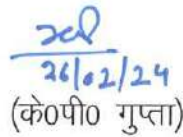 26/02/24
(के0पी0 गुप्ता)